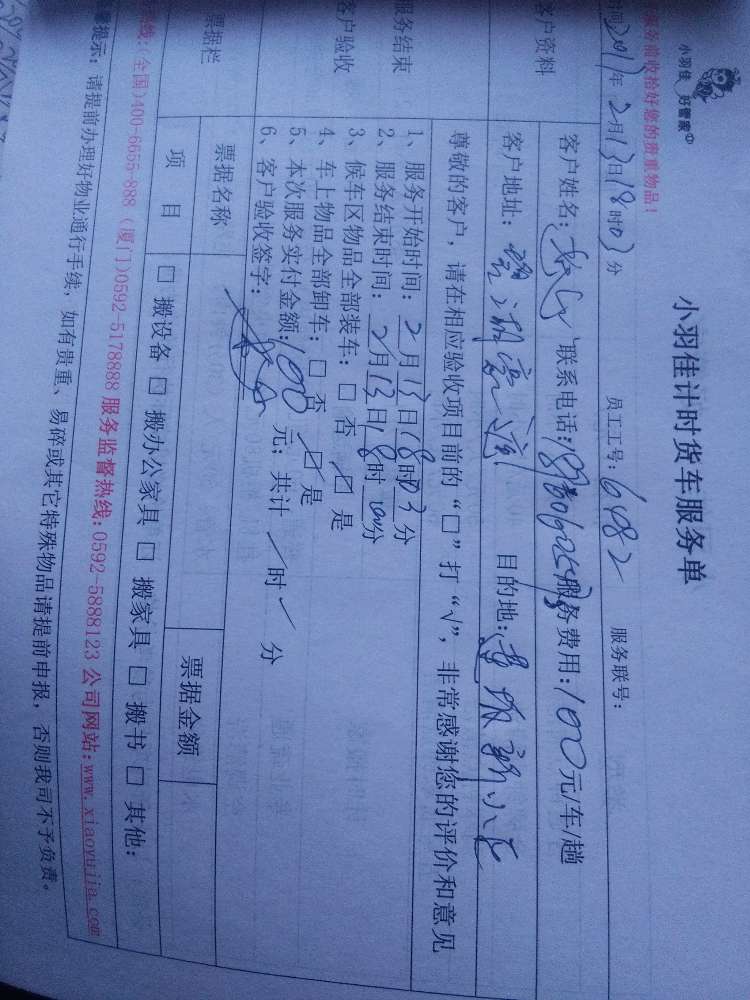 小羽佳 好管家
小羽佳计时货车服务单
服务前收拾好您的贵重物品！
2月13日18时03分 员工工号：6482 服务联号：
客户资料
客户姓名： 联系电话： 服务费用：100元/车/趟
客户地址： 目的地：
尊敬的客户，请在相应验收项目前的“□”打“√”，非常感谢您的评价和意见
服务结束
客户验收
1、服务开始时间：2月13日18时03分
2、服务结束时间：2月13日18时分
3、候车区物品全部装车：□ 否 □ 是
4、车上物品全部卸车：□ 否 □ 是
5、本次服务实付金额：100元；共计 时 分
6、客户验收签字：
票据栏 票据名称 票据金额
项 目 □ 搬设备 □ 搬办公家具 □ 搬家具 □ 搬书 □ 其他：
热线：(全国)400-6655-888 (厦门)0592-5178888 服务监督热线：0592-5888123 公司网站：www.xiaoyujia.com
提示：请提前办理好物业通行手续，如有贵重、易碎或其它特殊物品请提前申报，否则我司不予负责。